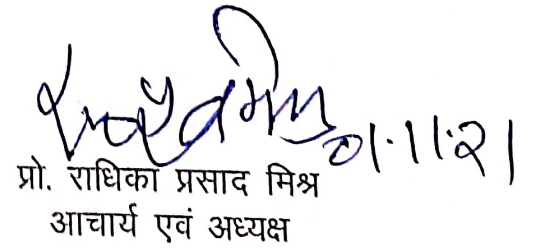 01.11.21
प्रो. राधिका प्रसाद मिश्र
आचार्य एवं अध्यक्ष